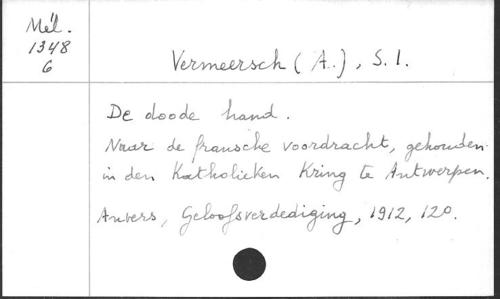 Mél.
1348
6
Vermeersch (A.), S.I.
De doode hand.
Naar de fransche voordracht, gehouden
in den Katholieken Kring te Antwerpen.
Anvers, Geloofsverdediging, 1912, 120.